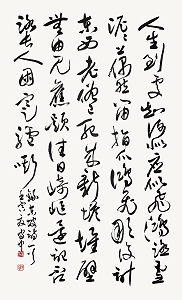 人生到處知何似應似飛鴻踏雪
泥上偶然留指爪鴻飛那復計
東西老僧已死成新塔壞壁
無由見舊題往日崎嶇還記
路長人困蹇驢嘶 蘇東坡詩